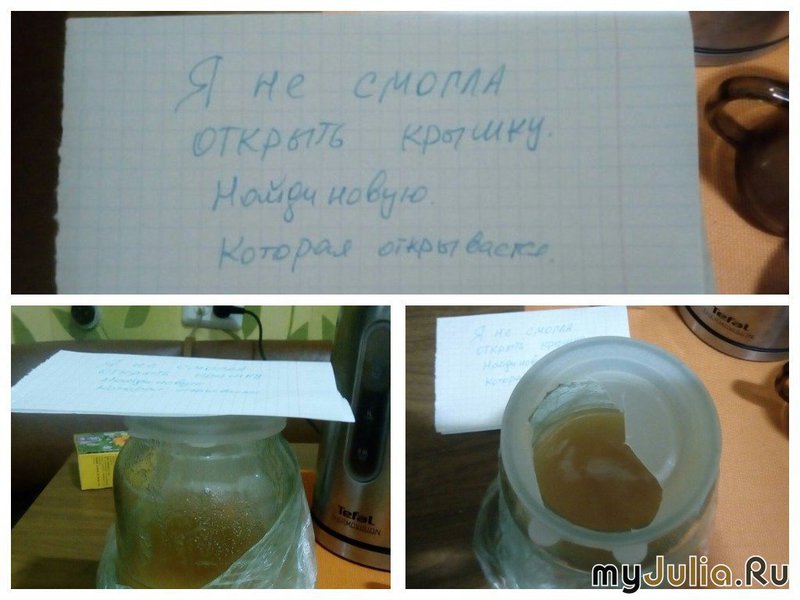 Я не смогла
открыть крышку.
Найди новую.
Которая открывается.
Tefal
Я не смогла
открыть
Найди новую
Которая
Tefal
THERMOVISION
Я не смогла
открыть
Найди
Которая
Tefal
myJulia.Ru